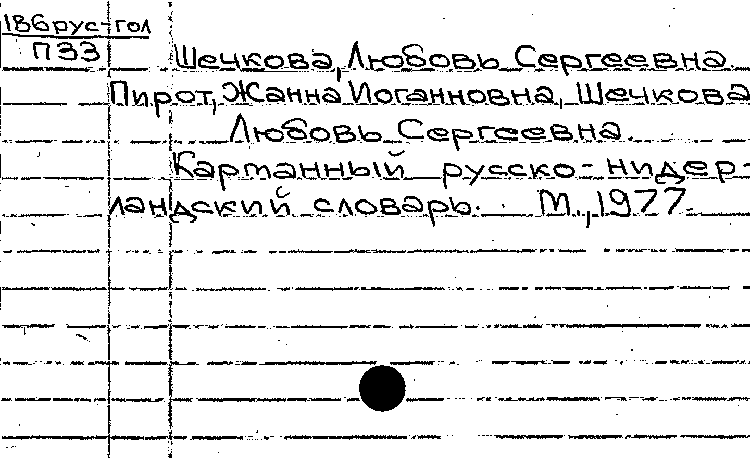 1Вбрус-гол
П33
Шечкова, Любовь Сергеевна.
Пирот, Жанна Иоганновна, Шечкова
Любовь Сергеевна.
Карманный русско-нидер-
ландский словарь. М., 1977.